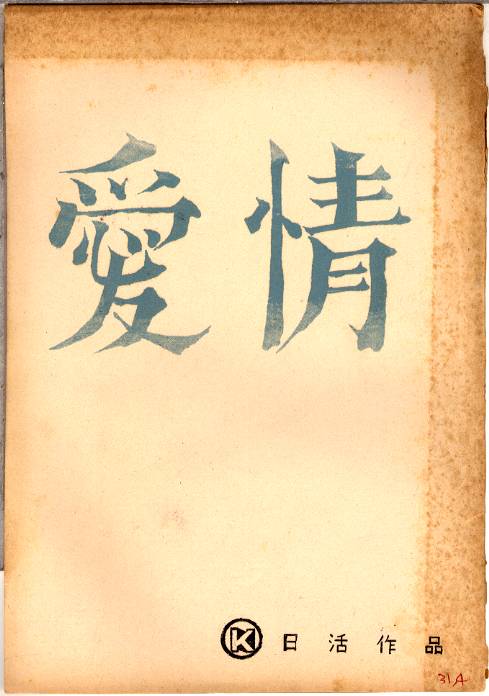 愛情
K 日活作品
31A